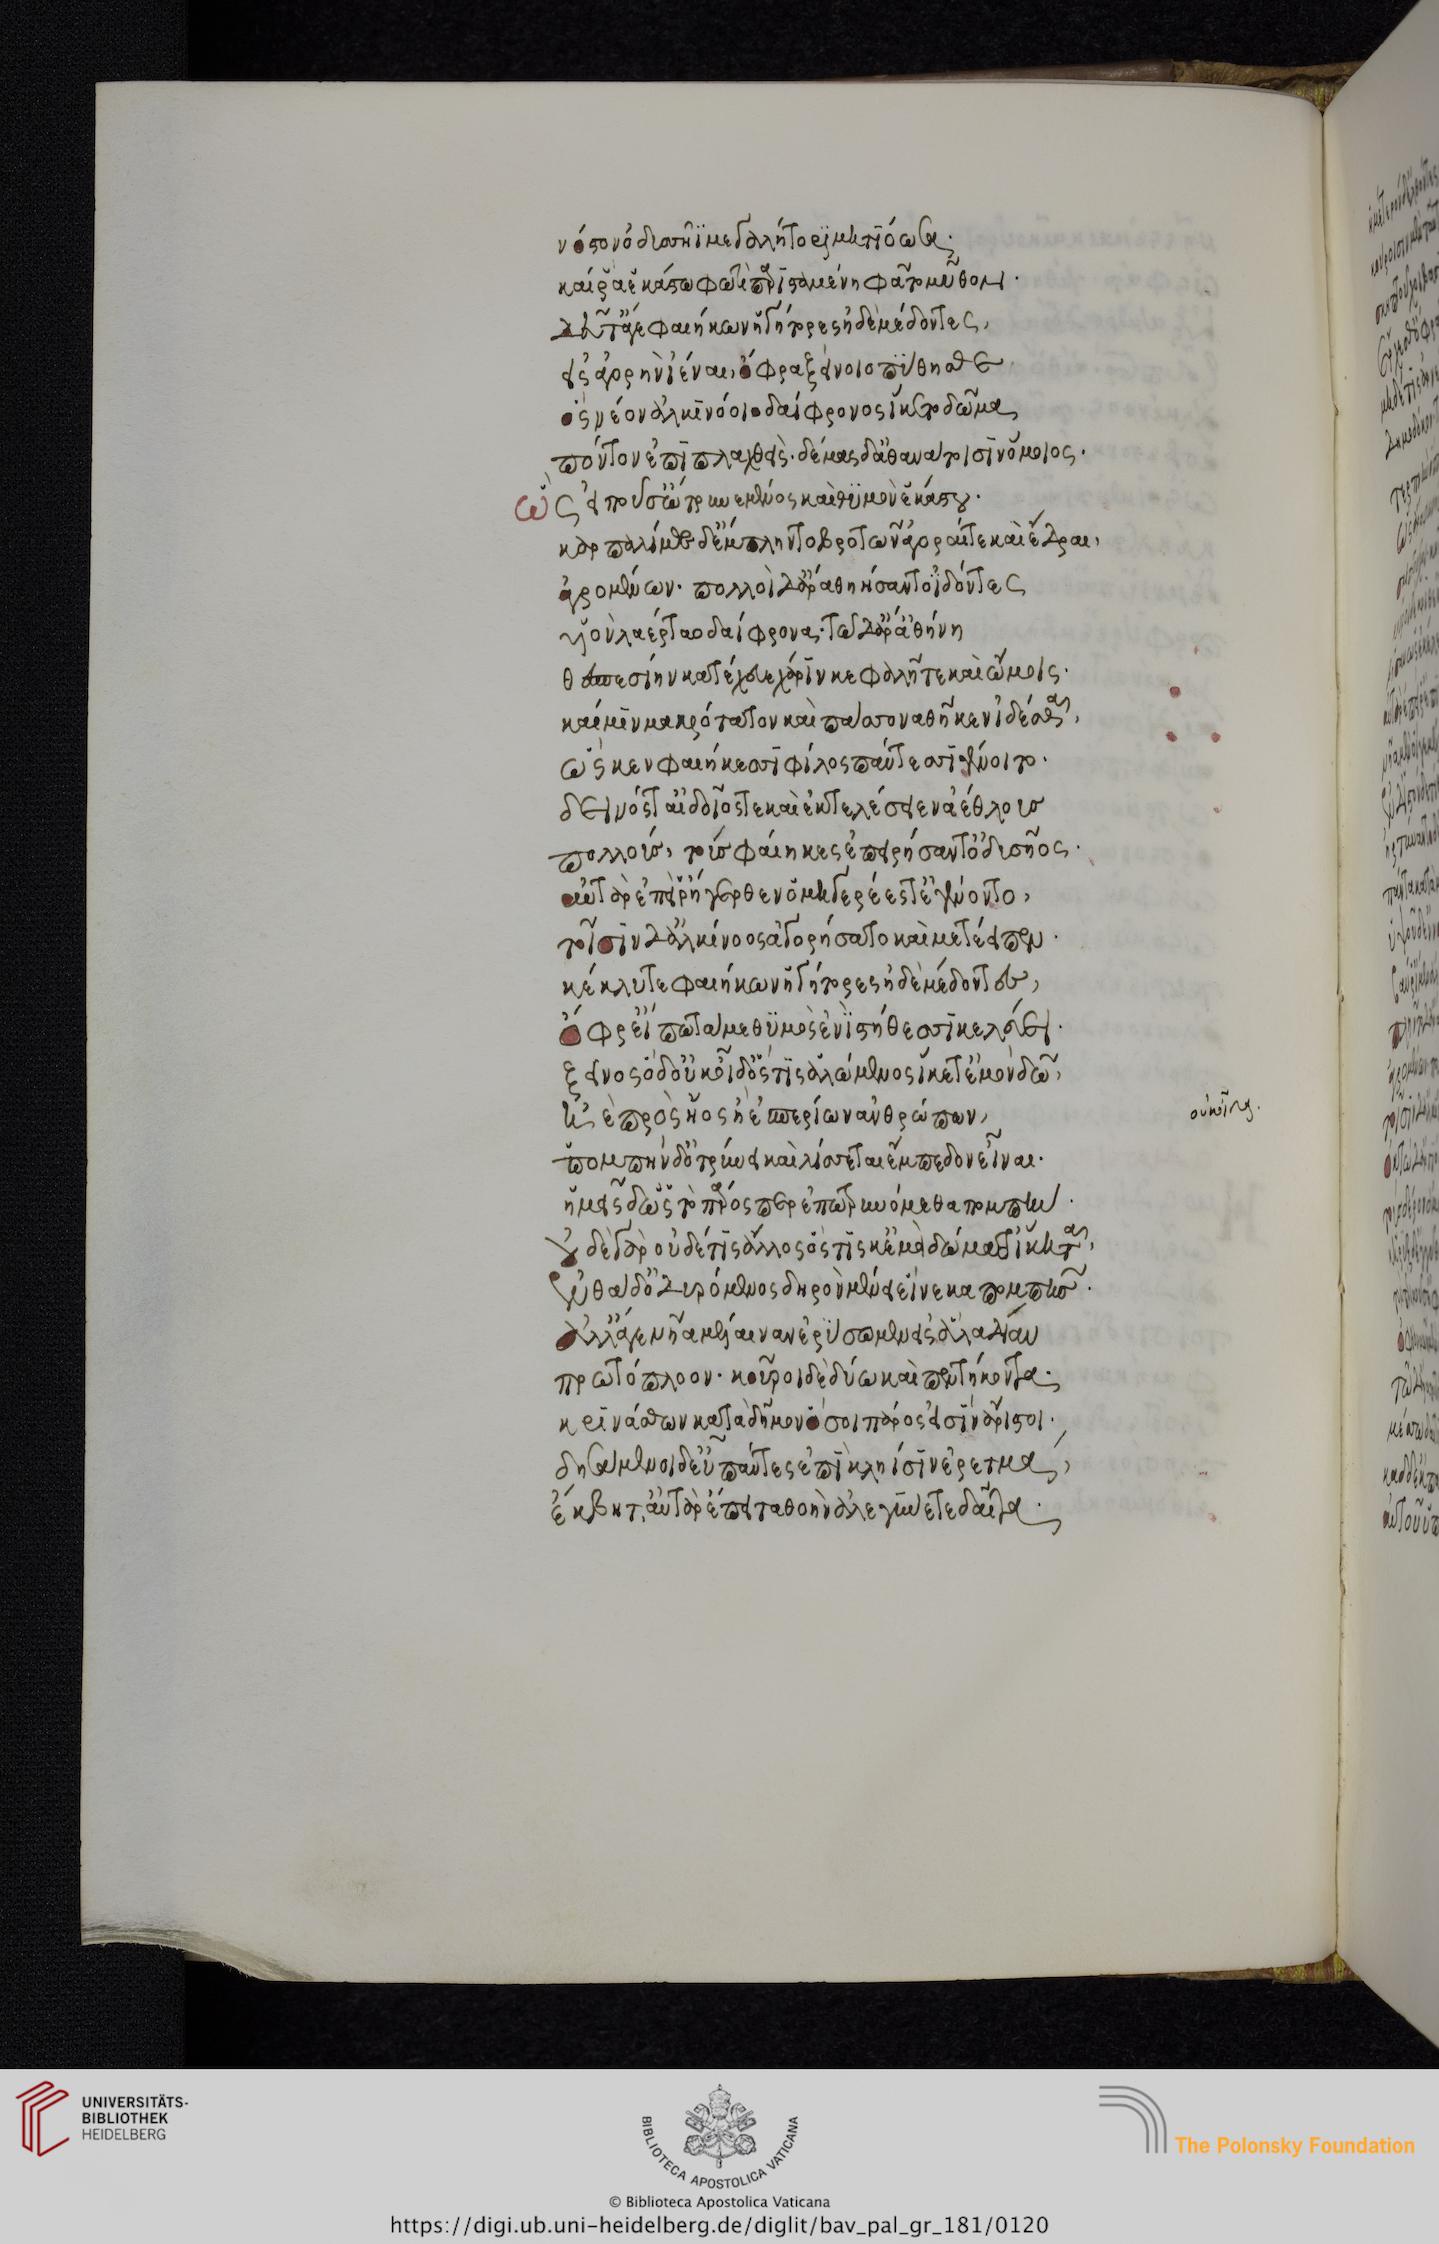 νόστον ὀδυσσῆϊ μεγαλήτορι μητιόωσα.
καί ῥα ἑκάστω φωτὶ παρισταμένη φάτο μῦθον.
δεῦτ' ἄγε φαιήκων ἡγήτορες ἠδὲ μέδοντες,
εἰς ἀγορὴν ἰέναι, ὄφρα ξείνοιο πύθησθε,
ὃς νέον ἀλκινόοιο δαίφρονος ἵκετο δῶμα
πόντον ἐπιπλαχθεὶς. δέμας ἀθανάτοισιν ὅμοιος.
ὣς εἰποῦσ' ὤτρυνε μένος καὶ θυμὸν ἑκάστου.
καρπαλίμως δ' ἔμπληντο βροτῶν ἀγοραί τε καὶ ἕδραι,
ἀγρομένων. πολλοὶ δ' ἄρ' ἐθηήσαντο ἰδόντες
υἱὸν λαέρταο δαίφρονα. τῷ δ' ἄρ' ἀθήνη
θεσπεσίην κατέχευε χάριν κεφαλῇ τε καὶ ὤμοις.
καί μιν μακρότατον καὶ πάσσονα θῆκεν ἰδέσθαι,
ὥς κεν φαιήκεσσι φίλος πάντεσσι γένοιτο.
δεινός τ' αἰδοῖός τε καὶ ἐκτελέσειεν ἀέθλους
πολλούς, τοὺς φαίηκες ἐπειρήσαντ' ὀδυσῆος.
αὐτὰρ ἐπεί ῥ' ἤγερθεν ὁμηγερέες τ' ἐγένοντο,
τοῖσιν δ' ἀλκίνοος ἀγορήσατο καὶ μετέειπεν.
κέκλυτε φαιήκων ἡγήτορες ἠδὲ μέδοντες,
ὄφρ' εἴπω τά με θυμὸς ἐνὶ στήθεσσι κελεύει.
ξεῖνος ὅδ' οὐκ οἶδ' ὅς τις ἀλώμενος ἵκετ' ἐμὸν δῶ,
ἠὲ πρὸς ἠοίων ἢ ἑσπερίων ἀνθρώπων,
πομπὴν δ' ὀτρύνει καὶ λίσσεται ἔμπεδον εἶναι.
ἡμεῖς δ' ὡς τὸ πάρος περ ἐποτρυνόμεθα πομπήν.
οὐδὲ γὰρ οὐδέ τις ἄλλος ὅς τίς κ' ἐμὰ δώμαθ' ἵκηται,
ἐνθάδ' ὀδυρόμενος δηρὸν μένει εἵνεκα πομπῆς.
ἀλλ' ἄγε νῆα μέλαιναν ἐρύσσομεν εἰς ἅλα δῖαν
πρωτόπλοον. κοῦροι δὲ δύω καὶ πεντήκοντα.
κρινάσθων κατὰ δῆμον ὅσοι πάρος εἰσὶν ἄριστοι.
δησάμενοι δ' εὖ πάντες ἐπὶ κληῖσιν ἐρετμά,
ἔκβητ' αὐτὰρ ἔπειτα θοὴν ἀλεγύνετε δαῖτα.
UNIVERSITÄTS-
BIBLIOTHEK
HEIDELBERG
BIBLIOTECA APOSTOLICA VATICANA
© Biblioteca Apostolica Vaticana
The Polonsky Foundation
https://digi.ub.uni-heidelberg.de/diglit/bav_pal_gr_181/0120